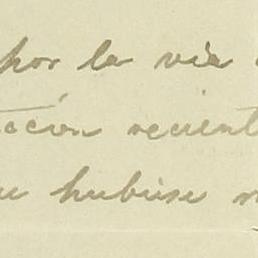 por la via
cción recient
hubiese